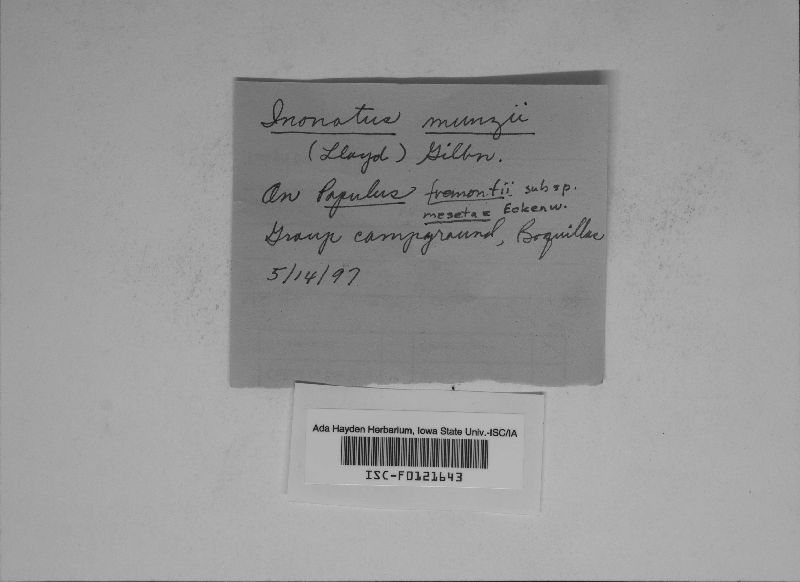 Inonotus munzii
(Lloyd) Gilbn.
On Populus fremontii subsp.
mesetae Eckenw.
Group campground, Boquillas
5/14/97
Ada Hayden Herbarium, Iowa State Univ.-ISC/IA
ISC-F0121643